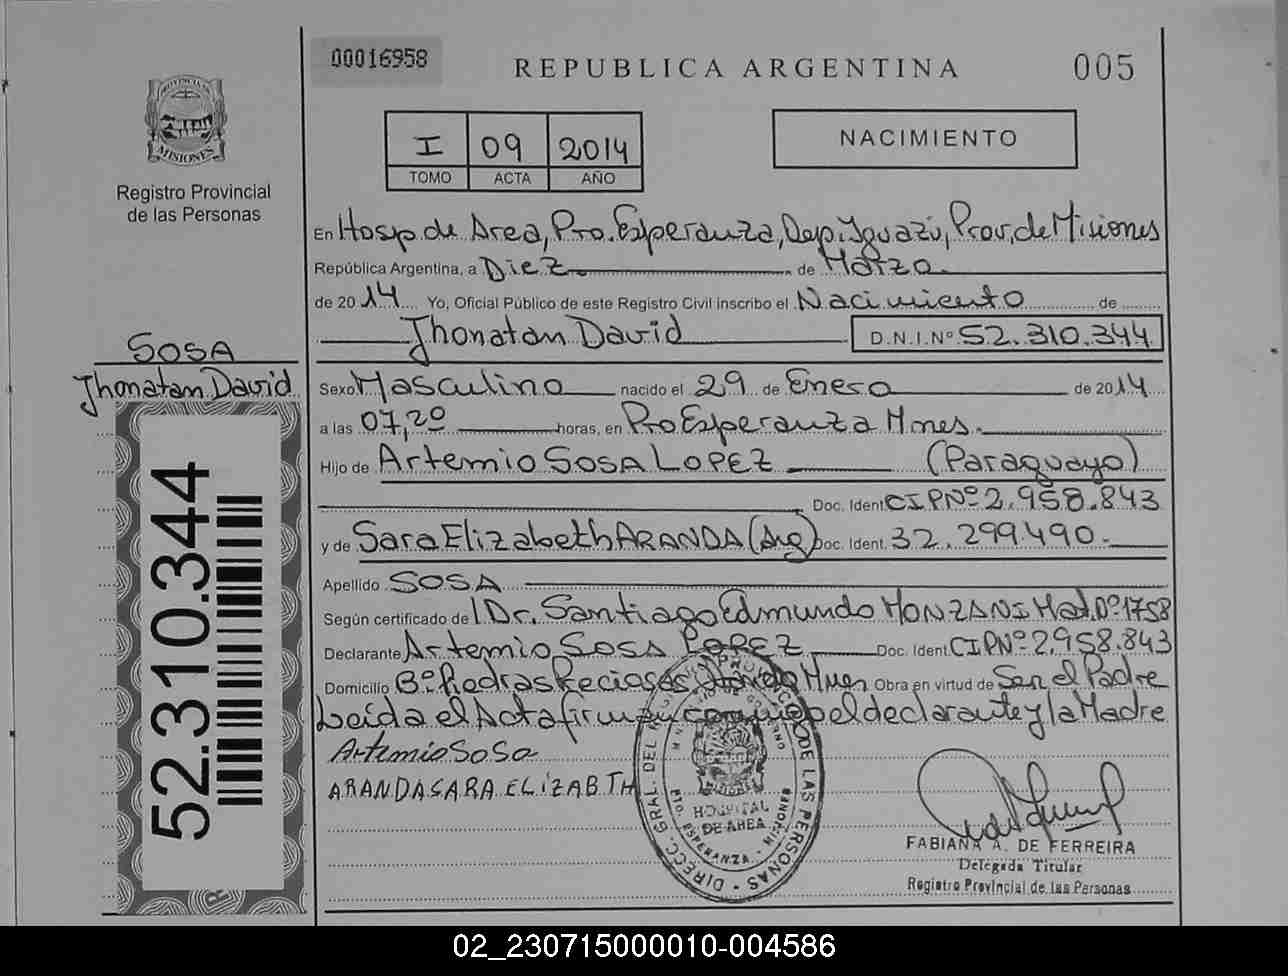 00016958
REPUBLICA ARGENTINA
005
PROVINCIA DE
MISIONES
Registro Provincial
de las Personas
I 09 2014
TOMO ACTA AÑO
NACIMIENTO
En Hosp. de Area, Pto. Esperanza, Dep. Iguazú, Prov. de Misiones
República Argentina, a Diez de Marzo
de 2014 Yo, Oficial Público de este Registro Civil inscribo el Nacimiento de
Jhonatan David D.N.I.Nº 52.310.344
SOSA
Jhonatan David
52.310.344
Sexo Masculino nacido el 29 de Enero de 2014
a las 07,20 horas, en Pto Esperanza Mnes.
Hijo de Artemio SOSA LOPEZ (Paraguayo)
Doc. Ident. CIPNº 2.958.843
y de Sara Elizabeth ARANDA (Arg) Doc. Ident. 32.299.490.-
Apellido SOSA
Según certificado del Dr. Santiago Edmundo MONZANI Mat. Nº 1758
Declarante Artemio Sosa LOPEZ Doc. Ident. CIPNº 2.958.843
Domicilio Bº Piedras Preciosas Mnes Obra en virtud de Ser el Padre
Leída el Acta firman conmigo el declarante y la Madre
Artemio SoSa
ARANDA SARA ELIZABTH
DIRECC. GRAL. DEL REGISTRO PROVINCIAL DE LAS PERSONAS
HOSPITAL
DE AREA
PTO. ESPERANZA - MISIONES
FABIANA A. DE FERREIRA
Delegada Titular
Registro Provincial de las Personas
02_230715000010-004586